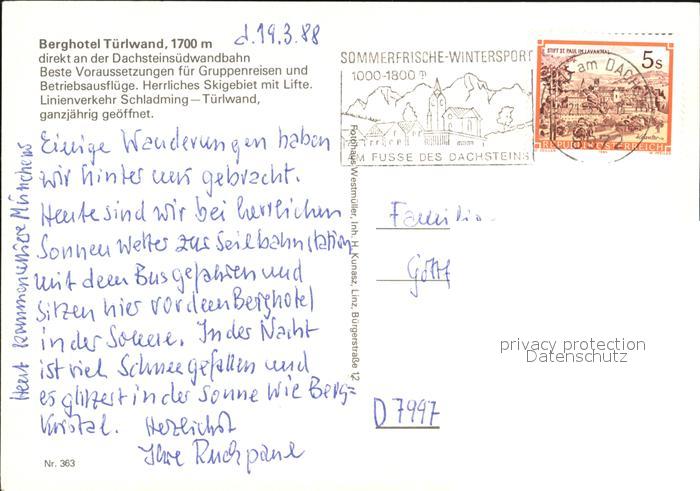 Berghotel Türlwand, 1700 m
direkt an der Dachsteinsüdwandbahn
Beste Voraussetzungen für Gruppenreisen und
Betriebsausflüge. Herrliches Skigebiet mit Lifte.
Linienverkehr Schladming – Türlwand,
ganzjährig geöffnet.
d. 19.3.88
Einige Wanderungen haben
wir hinter uns gebracht.
Heute sind wir bei herrlichem
Sonnenwetter zur Seilbahnstation
mit dem Bus gefahren und
sitzen hier vor dem Berghotel
in der Sonne. In der Nacht
ist viel Schnee gefallen und
es glitzert in der Sonne wie Berg=
kristal. Herzlichst
Ihre
Heut kommen
Nr. 363
Fotohaus Westmüller, Inh. H. Kunasz, Linz, Bürgerstraße 12
SOMMERFRISCHE-WINTERSPORT
1000-1800 m
AM FUSSE DES DACHSTEINS
STIFT ST. PAUL IM LAVANTTAL
5 S
REPUBLIK ÖSTERREICH
am DACH
Familie
D 7997
privacy protection
Datenschutz